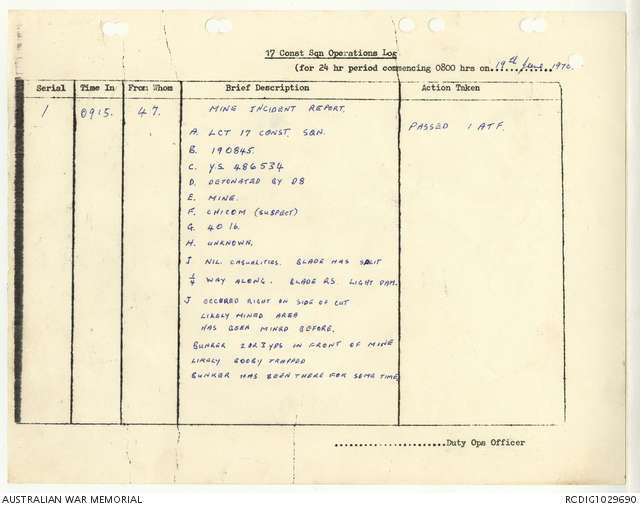 17 Const Sqn Operations Log
(for 24 hr period commencing 0800 hrs on 19th June 1970.
Serial Time In From Whom Brief Description Action Taken
1 0915. 47. MINE INCIDENT REPORT.
A. LCT 17 CONST. SQN. PASSED 1 ATF.
B. 190845.
C. YS 486534
D. DETONATED BY D8
E. MINE.
F. CHICOM (SUSPECT)
G. 40 16.
H. UNKNOWN.
I NIL. CASUALITIES. BLADE HAS SPLIT
¼ WAY ALONG. BLADE RS. LIGHT DAM.
J OCCURED RIGHT ON SIDE OF CUT
LIKELY MINED AREA
HAS BEEN MINED BEFORE.
BUNKER 2 OR 3 YDS IN FRONT OF MINE
LIKELY BOOBY TRAPPED
BUNKER HAS BEEN THERE FOR SOME TIME
....................Duty Ops Officer
AUSTRALIAN WAR MEMORIAL RCDIG1029690